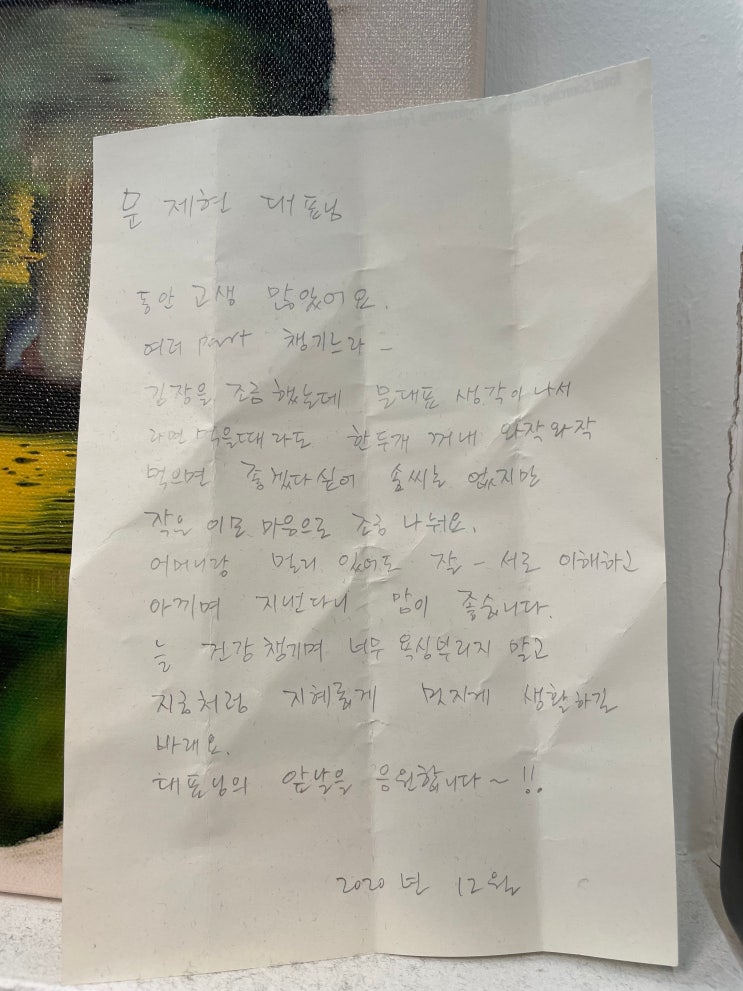 문 제현 대표님
동안 고생 많았어요.
여러 part 챙기느라 -
김장을 조금 했는데 문대표 생각이나서
라면 먹을때라도 한두개 꺼내 와작와작
먹으면 좋겠다싶어 솜씨는 없지만
작은 이모 마음으로 조금 나눠요.
어머니랑 멀리 있어도 잘 - 서로 이해하고
아끼며 지낸다니 맘이 좋습니다.
늘 건강 챙기며 너무 욕심부리지 말고
지금처럼 지혜롭게 멋지게 생활하길
바래요.
대표님의 앞날을 응원합니다~!!
2020년 12월